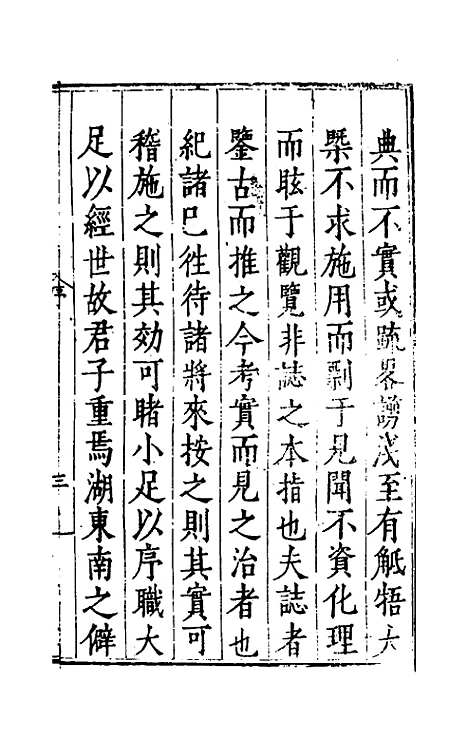 典而不實或疏畧謭浅至有觝牾大
槩不求施用而剽于見聞不資化理
而眩于觀覽非誌之本指也夫誌者
鑒古而推之今考實而見之治者也
紀諸已徃待諸將來按之則其實可
稽施之則其効可睹小足以序職大
足以經世故君子重焉湖東南之僻
序
三